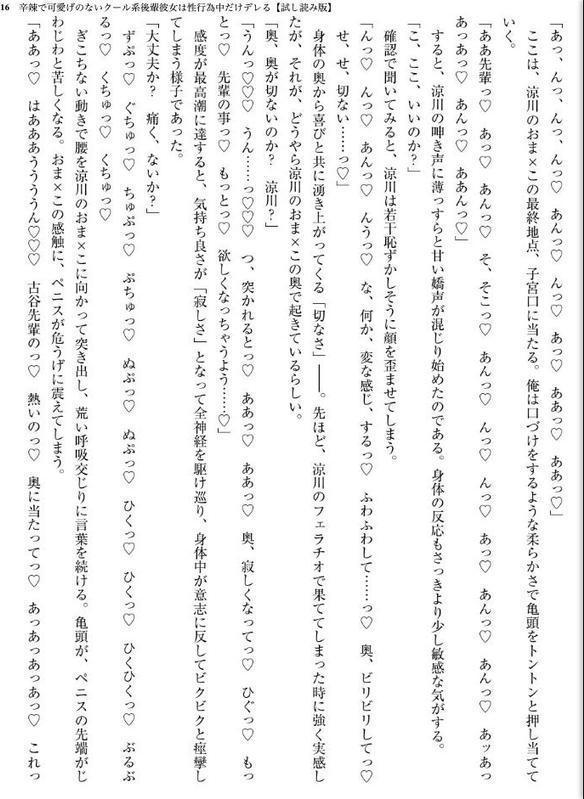 16 辛辣で可愛げのないクール系後輩彼女は性行為中だけデレる【試し読み版】
「あっ、んっ、んっ、んっ♡　あんっ♡　んっ♡　ああっ♡　ああっ♡」
ここは、涼川のおま×この最終地点、子宮口に当たる。俺は口づけをするような柔らかさで亀頭をトントンと押し当てて
いく。
「ああ先輩っ♡　あっ♡　あんっ♡　そ、そこっ♡　あんっ♡　んっ♡　んっ♡　あっ♡　あんっ♡　あんっ♡　アッあっ
あっあっっ♡　あんっっ♡　ああんっ♡」
すると、涼川の呻き声に薄っすらと甘い嬌声が混じり始めたのである。身体の反応もさっきより少し敏感な気がする。
「こ、ここ、いいのか？」
確認で聞いてみると、涼川は若干恥ずかしそうに顔を歪ませてしまう。
「んっ♡　んっ♡　あんっ♡　んうっ♡　な、何か、変な感じ、するっ♡　ふわふわして……っ♡　奥、ビリビリしてっ♡
せ、せ、切ない……っ♡」
身体の奥から喜びと共に湧き上がってくる「切なさ」――。先ほど、涼川のフェラチオで果ててしまった時に強く実感し
たが、それが、どうやら涼川のおま×この奥で起きているらしい。
「奥、奥が切ないのか？　涼川？」
「うんっ♡♡♡　うん……っ♡♡♡　つ、突かれるとっ♡　ああっ♡　ああっ♡　奥、寂しくなってっ♡　ひぐっ♡　もっ
とっ♡　先輩の事っ♡　もっとっ♡　欲しくなっちゃうよう……♡」
感度が最高潮に達すると、気持ち良さが「寂しさ」となって全神経を駆け巡り、身体中が意志に反してビクビクと痙攣し
てしまう様子であった。
「大丈夫か？　痛く、ないか？」
ずぷっ♡　ぐちゅっ♡　ちゅぷっ♡　ぷちゅっ♡　ぬぷっ♡　ぬぷっ♡　ひくっ♡　ひくっ♡　ひくひくっ♡　ぶるぶ
るっ♡　くちゅっ♡　くちゅっ♡
ぎこちない動きで腰を涼川のおま×こに向かって突き出し、荒い呼吸交じりに言葉を続ける。亀頭が、ペニスの先端がじ
わじわと苦しくなる。おま×この感触に、ペニスが危うげに震えてしまう。
「ああっ♡　はあああうううん♡♡♡　古谷先輩のっ♡　熱いのっ♡　奥に当たってっ♡　あっあっあっあっ♡　これっ